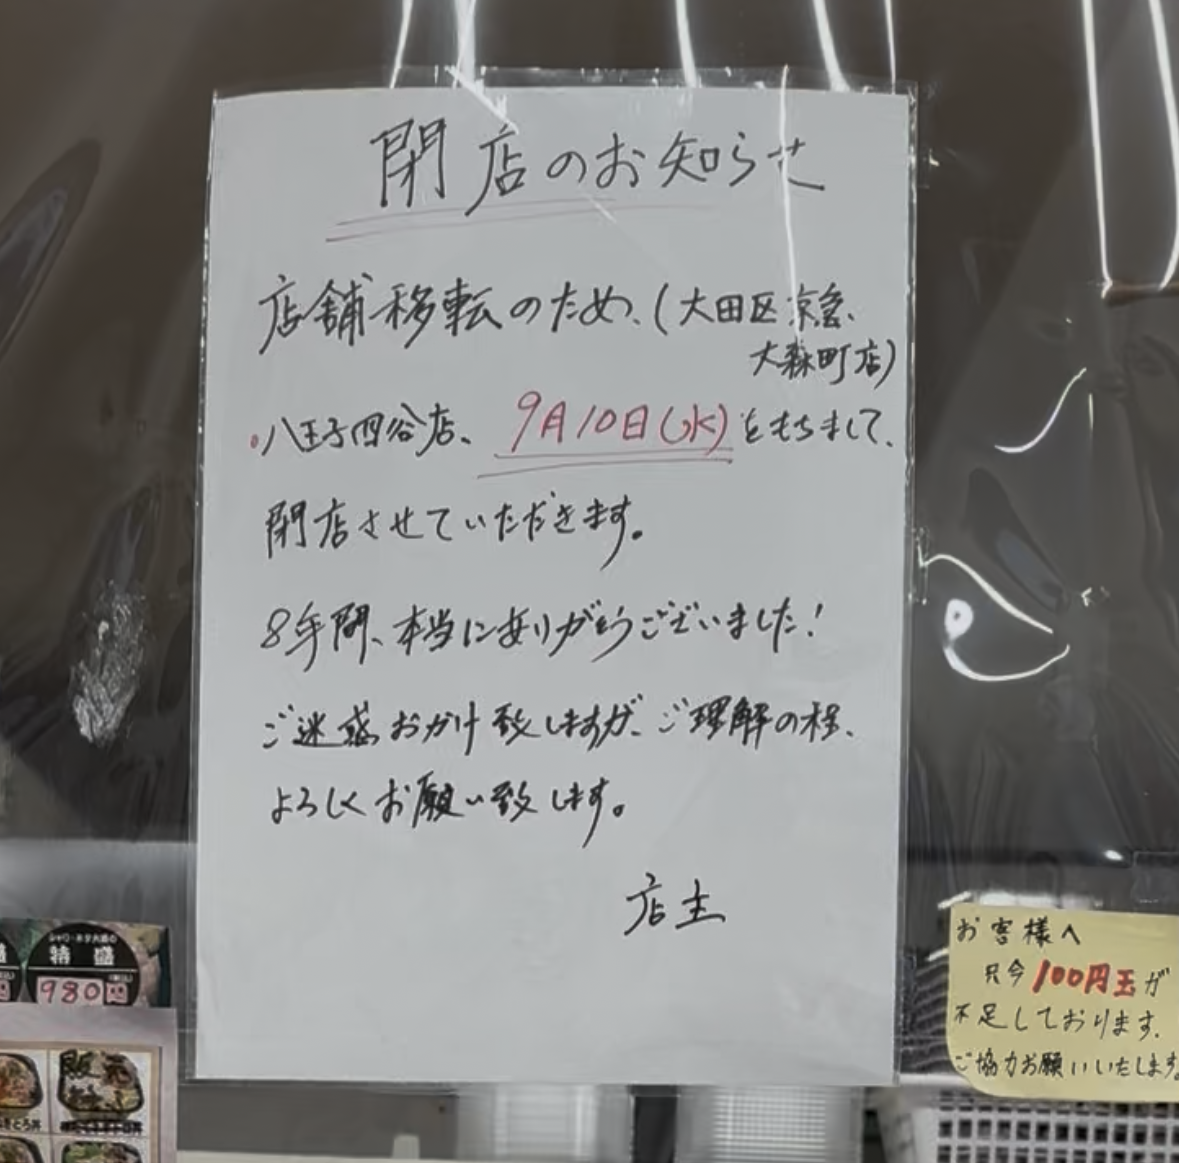 閉店のお知らせ
店舗移転のため、(大田区京急、
大森町店)
八王子四谷店、9月10日(水)をもちまして、
閉店させていただきます。
8年間、本当にありがとうございました!
ご迷惑おかけ致しますが、ご理解の程、
よろしくお願い致します。
店主
特盛
980円
販売
お客様へ
只今100円玉が
不足しております。
ご協力お願いいたします。